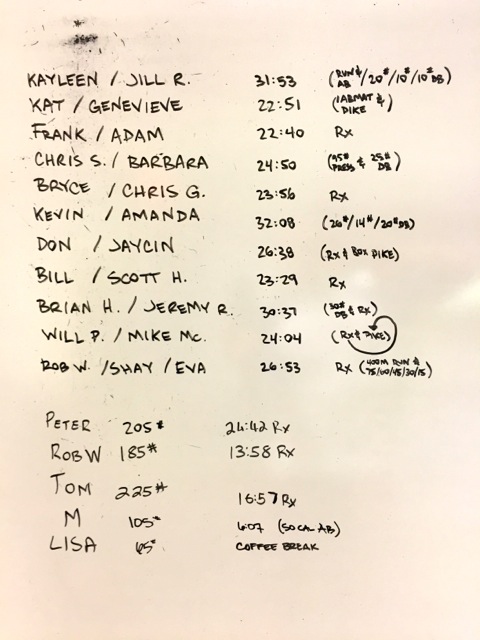 KAYLEEN / JILL R. 31:53 (RUN & AB /20#/10#/10# DB)
KAT / GENEVIEVE 22:51 (1ABMAT & PIKE)
FRANK / ADAM 22:40 Rx
CHRIS S. / BARBARA 24:50 (95# PRESS & 25# DB)
BRYCE / CHRIS G. 23:56 Rx
KEVIN / AMANDA 32:08 (26#/14#/20#DB)
DON / JAYCIN 26:38 (Rx & BOX PIKE)
BILL / SCOTT H. 23:29 Rx
BRIAN H. / JEREMY R. 30:37 (30# DB & Rx)
WILL P. / MIKE MC. 24:04 (Rx & PIKE)
ROB W. /SHAY / EVA 26:53 Rx (400M RUN & 75/60/45/30/15)
PETER 205# 24:42 Rx
ROB W 185# 13:58 Rx
TOM 225# 16:57 Rx
M 105# 6:07 (SO CAL AB)
LISA 65# COFFEE BREAK